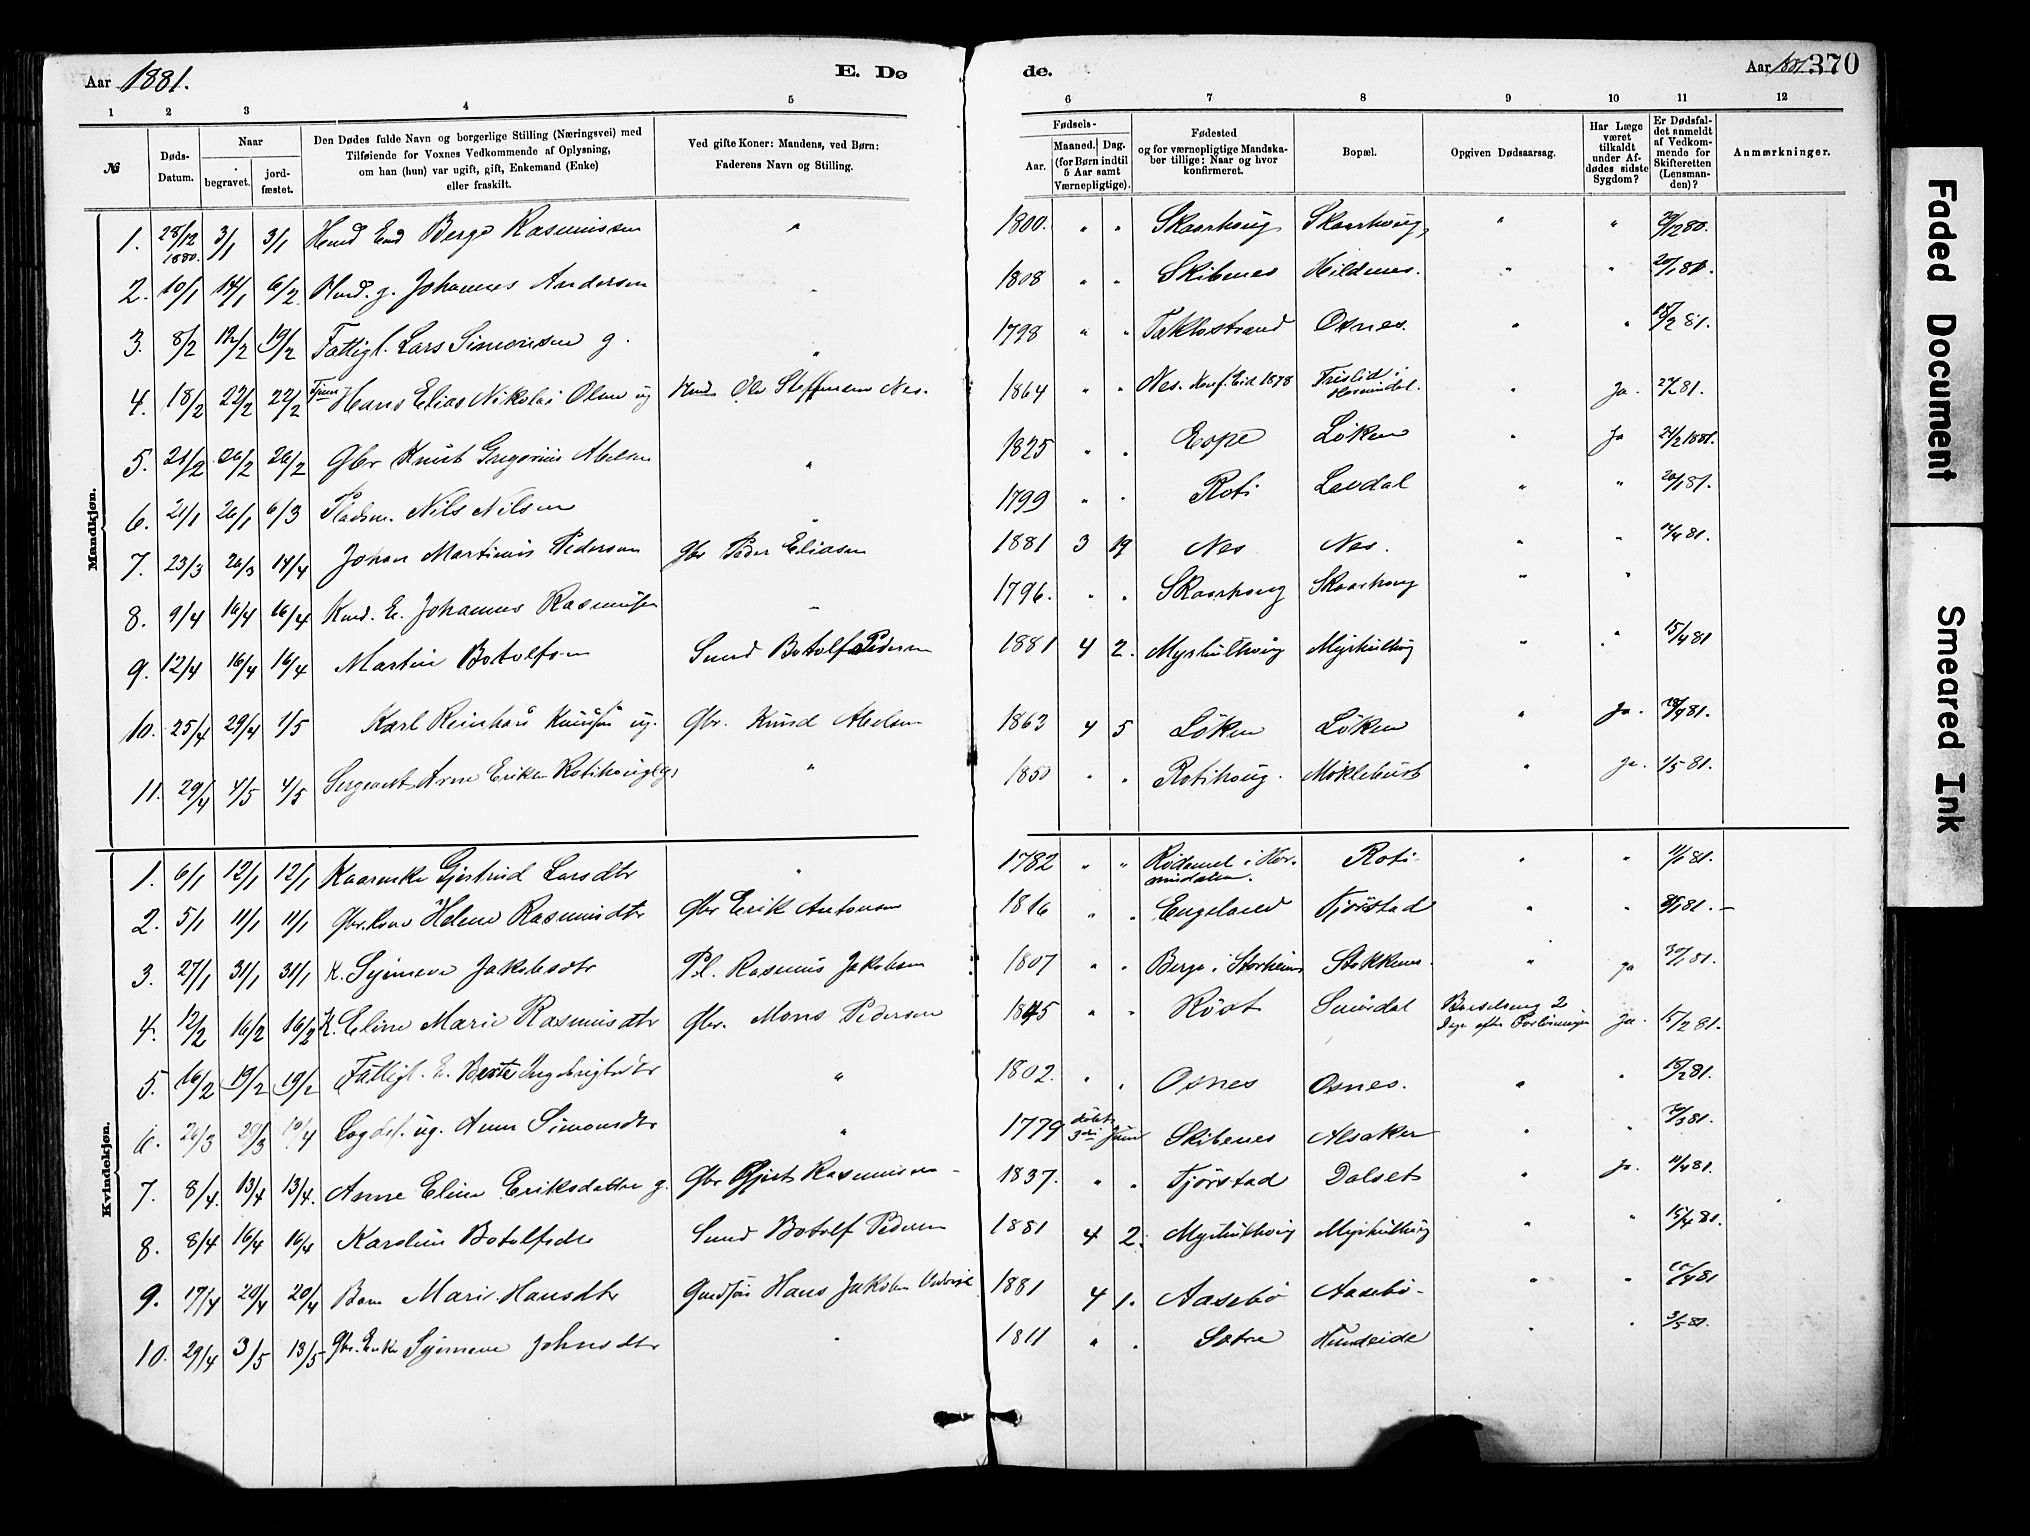 Aar 1881.
E. Dø
de.
Aar 1881. 370
1 2 3 4 5 6 7 8 9 10 11 12
№
Døds-Datum.
Naar
begravet.
jord-fæstet.
Den Dødes fulde Navn og borgerlige Stilling (Næringsvei) med
Tilføiende for Voxnes Vedkommende af Oplysning,
om han (hun) var ugift, gift, Enkemand (Enke)
eller fraskilt.
Ved gifte Koner: Mandens, ved Børn:
Faderens Navn og Stilling.
Fødsels-
Aar.
Maaned. Dag.
(for Børn indtil
5 Aar samt
Værnepligtige).
Fødested
og for værnepligtige Mandska-
ber tillige: Naar og hvor
konfirmeret.
Bopæl.
Opgiven Dødsaarsag.
Har Læge
været
tilkaldt
under Af-
dødes sidste
Sygdom?
Er Dødsfal-
det anmeldt
af Vedkom-
mende for
Skifteretten
(Lensman-
den)?
Anmærkninger.
Mandkjøn.
1. 28/12 1880. 3/1 3/1 Berge Rasmussen " 1800. " " Skaarhoug Skaarhoug " "
2. 10/1 14/1 6/2 g. Johannes Andersen " 1808 " " Skibenes Hildenes. " " 20/1 81.
3. 8/2 12/2 19/2 Fattigl. Lars Simonsen g. " 1798 " " Taklostrand Osnes. " " 18/2 81.
4. 18/2 22/2 22/2 Hans Elias Nikolai Olsen ug Ole Steffensen Nes. 1864 " " Nes. Konf. Eid 1878 " Ja.
5. 21/2 26/2 26/2 Gbr Knut Gregorius Abelsen " 1825 " " Espe Løken " Ja 24/2 1881.
6. 21/1 26/1 6/3 Pladsm. Nils Nilsen " 1799 " " Roti Levdal " " 20/1 81.
7. 23/3 26/3 14/4 Johan Martinus Pedersen Gbr Peder Eliasen 1881 3 19 Nes Nes. " " 14/4 81.
8. 9/4 16/4 16/4 E. Johannes Rasmusen 1796. " " Skaarhoug Skaarhoug " "
9. 12/4 16/4 16/4 Martin Botolfsen Botolf Pedersen 1881 4 2. Myrhulthoug Myrhulthoug " " 15/4 81
10. 25/4 29/4 1/5 Karl Reinhar Knudsen ug. Gbr. Knud Abelsen 1863 4 5 Løken Løken " Ja. 28/4 81.
11. 29/4 4/5 4/5 Sergeant Arne Eriksen Rotihoug g. " 1850 " " Rotihoug. Möklebust " Ja. 1/5 81.
Kvindekjøn.
1. 6/1 12/1 12/1 Kaarenke Gjertrud Larsdtr " 1782 " " i Hor- Roti. " " 11/1 81.
nindalen.
2. 5/1 11/1 11/1 Helene Rasmusdtr Gbr Erik Antonsen 1816 " " Engeland Tjörstad " "
3. 27/1 31/1 31/1 K. Synneve Jakobsdtr Pl. Rasmus Jakobsen 1807 " " Berge i Storheim Stokkenes. " ja 30/1 81.
4. 12/2 16/2 16/2 K. Eline Marie Rasmusdtr Gbr. Mons Pedersen 1845 " " Röset Smördal Barselseng 2 Ja. 15/2 81.
Dage efter Forløsningen
5. 16/2 19/2 19/2 Fattigl. E. Berte Ingebrigtsdtr " 1802. " " Osnes Osnes. " " 18/2 81.
6. 26/3 29/3 10/4 Logdsl. ug. Anne Simonsdtr " 1779 döbt 3die Juni Skibenes Alsaker " " 30/3 81.
7. 8/4 13/4 13/4. Anne Eline Eriksdatter g. Gbr Gjert Rasmussen 1837. " " Tjörstad Dalset " Ja. 11/4 81.
8. 8/4 16/4 16/4 Karoline Botolfsdtr Botolf Pedersen 1881 4 2. Myrhulthoug Myrhulthoug " " 15/4 81.
9. 17/4 20/4 20/4 Barn Marie Hansdtr Hans Jakobsen 1881 4 1. Aasebö Aasebö. " "
10. 29/4 3/5 13/5 Gbr. Enke Synneve Johnsdtr " 1811 " " Sætre Hundeide " "
Faded Document
Smeared Ink